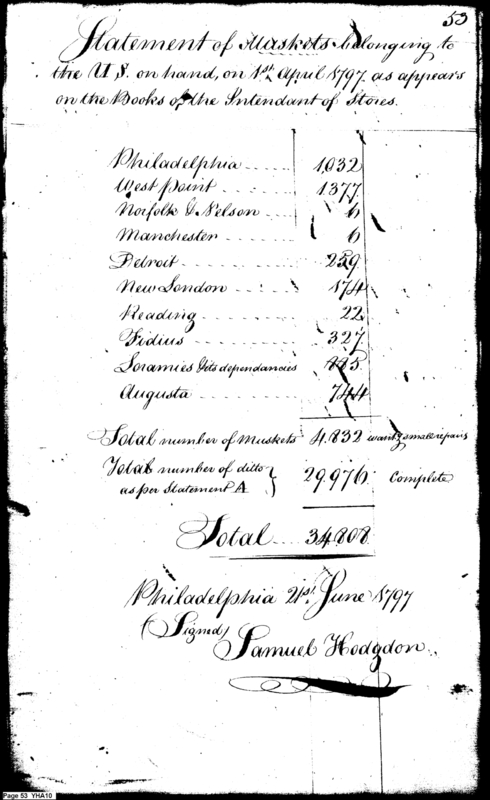 53
Statement of Muskets belonging to
the U S. on hand, on 1st. April 1797. as appears
on the Books of the Intendant of Stores.
Philadelphia ..... 1,032
West Point ..... 1377
Norfolk & Nelson ..... 6
Manchester ..... 6
Detroit ..... 259
New London ..... 174
Reading ..... 22
Fidius ..... 327
Loramies & its dependancies 885
Augusta ..... 744
Total number of Muskets 4.832 wantg small repairs
Total number of ditto
as per Statement A } 29.976 Complete
Total .... 34.808
Philadelphia 21st. June 1797
(Signed)
Samuel Hodgdon.
Page 53 YHA10